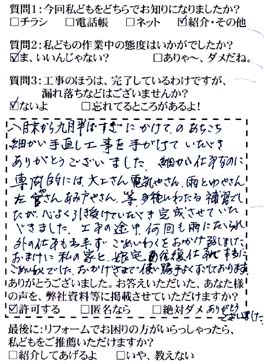 質問1:今回私どもをどちらでお知りになりましたか?
□チラシ □電話帳 □ネット ☑紹介・その他
質問2:私どもの作業中の態度はいかがでしたか?
☑ま、いいんじゃない? □ありゃ〜、ダメだね。
質問3:工事のほうは、完了しているわけですが、
漏れ落ちなどはございませんか?
☑ないよ □忘れてるところがあるよ!
八月末から九月半ばすぎにかけてのあちこち
細かい手直し工事を手がけていただき
ありがとうございました。細かい仕事なのに
専門的には、大工さん、電気やさん、雨とゆやさん
左官さん、あみ戸やさん、等多種にわたる補習でし
たが、心よく引き受けていただき完成させていた
だきました。工事の途中何回も雨にたたられ
外の仕事も
おまけに私の家と
ありがとうございました。お答えいただいた、あなた様
の声を、弊社資料等に掲載させていただけますか?
☑許可する □匿名なら □絶対ダメ ありがとう
ございました。
最後に:リフォームでお困りの方がいらっしゃったら、
私どもをご推薦いただけますか?
□紹介してあげるよ □いや、教えない